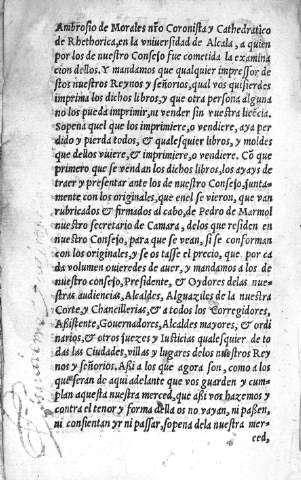 Ambrosio de Morales nr̃o Coronista y Cathedratico
de Rhethorica, en la vniuersidad de Alcala, a quien
por los de nuestro Consejo fue cometida la examina
cion dellos. Y mandamos que qualquier impressor de
stos nuestros Reynos y señorios, qual vos quisierdes
imprima los dichos libros, y que otra persona alguna
no los pueda imprimir, ni vender sin vuestra licēcia.
Sopena quel que los imprimiere, o vendiere, aya per
dido y pierda todos, & qualesquier libros, y moldes
que dellos vuiere, & imprimiere, o vendiere. Cō que
primero que se vendan los dichos libros, los ayays de
traer y presentar ante los de nuestro Consejo, junta-
mente con los originales, que enel se vieron, que van
rubricados & firmados al cabo, de Pedro de Marmol
nuestro secretario de Camara, delos que residen en
nuestro Consejo, para que se vean, si se conforman
con los originales, y se os tasse el precio, que por ca
da volumen ouieredes de auer, y mandamos a los de
nuestro consejo, Presidente, & Oydores delas nue-
stras audiencias, Alcaldes, Alguaziles de la nuestra
Corte, y Chancillerias, & a todos los Corregidores,
Aßistente, Gouernadores, Alcaldes mayores, & ordi
narios, & otros juezes y Iusticias qualesquier de to
das las Ciudades, villas y lugares delos nuestros Rey
nos y señorios, Aßi a los que agora son, como a los
que seran de aqui adelante que vos guarden y cum-
plan aquesta nuestra merced, que aßi vos hazemos y
contra el tenor y forma della os no vayan, ni paßen,
ni consientan yr ni passar, sopena dela nuestra mer-
ced,